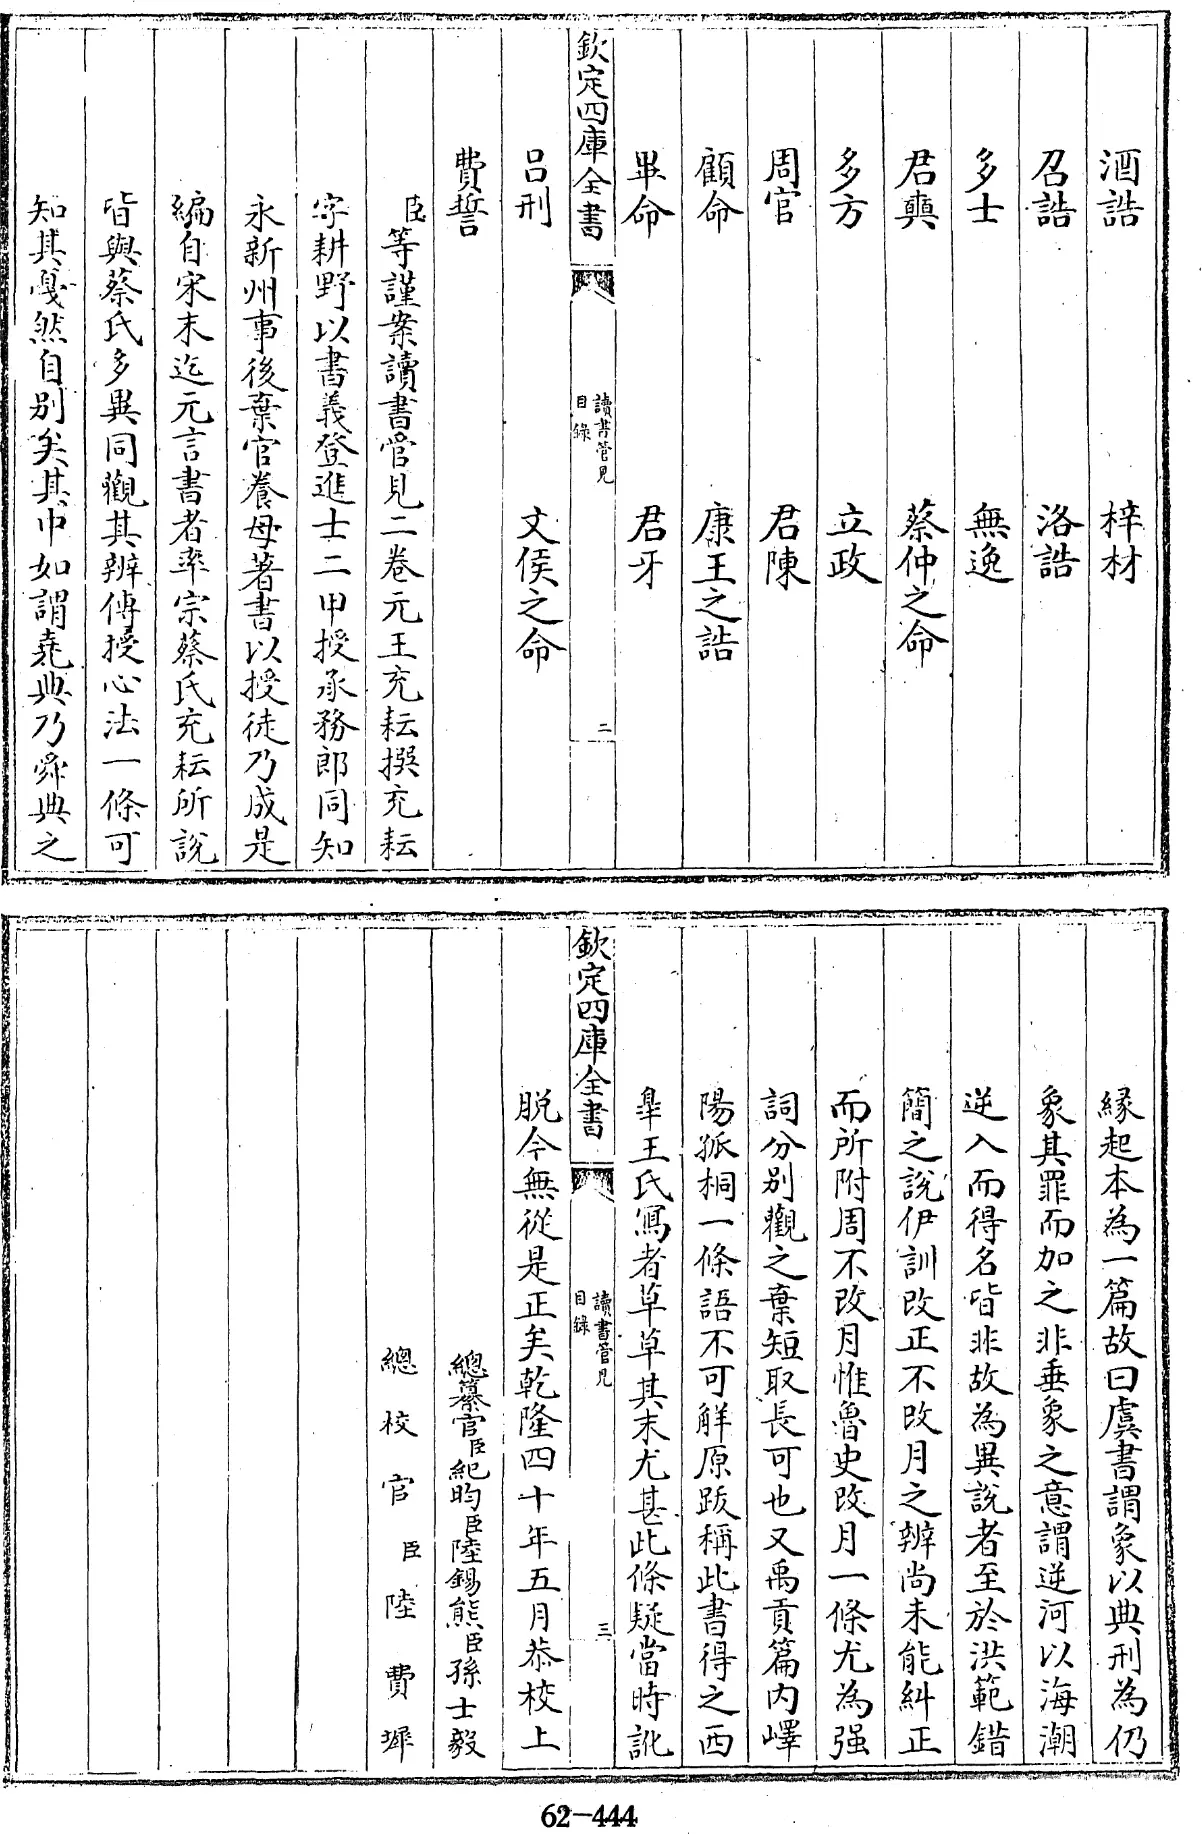 酒誥　梓材
召誥　洛誥
多士　無逸
君奭　蔡仲之命
多方　立政
周官　君陳
顧命　康王之誥
畢命　君牙
欽定四庫全書　讀書管見目錄　二
呂刑　文侯之命
費誓
臣等謹案讀書管見二卷元王充耘撰充耘
字耕野以書義登進士二甲授承務郎同知
永新州事後棄官養母著書以授徒乃成是
編自宋末迄元言書者率宗蔡氏充耘所說
皆與蔡氏多異同觀其辨傳授心法一條可
知其戞然自别矣其中如謂堯典乃舜典之
緣起本為一篇故曰虞書謂象以典刑為仍
象其罪而加之非垂象之意謂逆河以海潮
逆入而得名皆非故為異說者至於洪範錯
簡之說伊訓改正不改月之辨尚未能糾正
而所附周不改月惟魯史改月一條尤為强
詞分别觀之棄短取長可也又禹貢篇内嶧
陽孤桐一條語不可解原跋稱此書得之西
臯王氏寫者草草其末尤甚此條疑當時訛
欽定四庫全書　讀書管見目錄　三
脱今無從是正矣乾隆四十年五月恭校上
總纂官臣紀昀臣陸錫熊臣孫士毅
總校官臣陸費墀
62-444